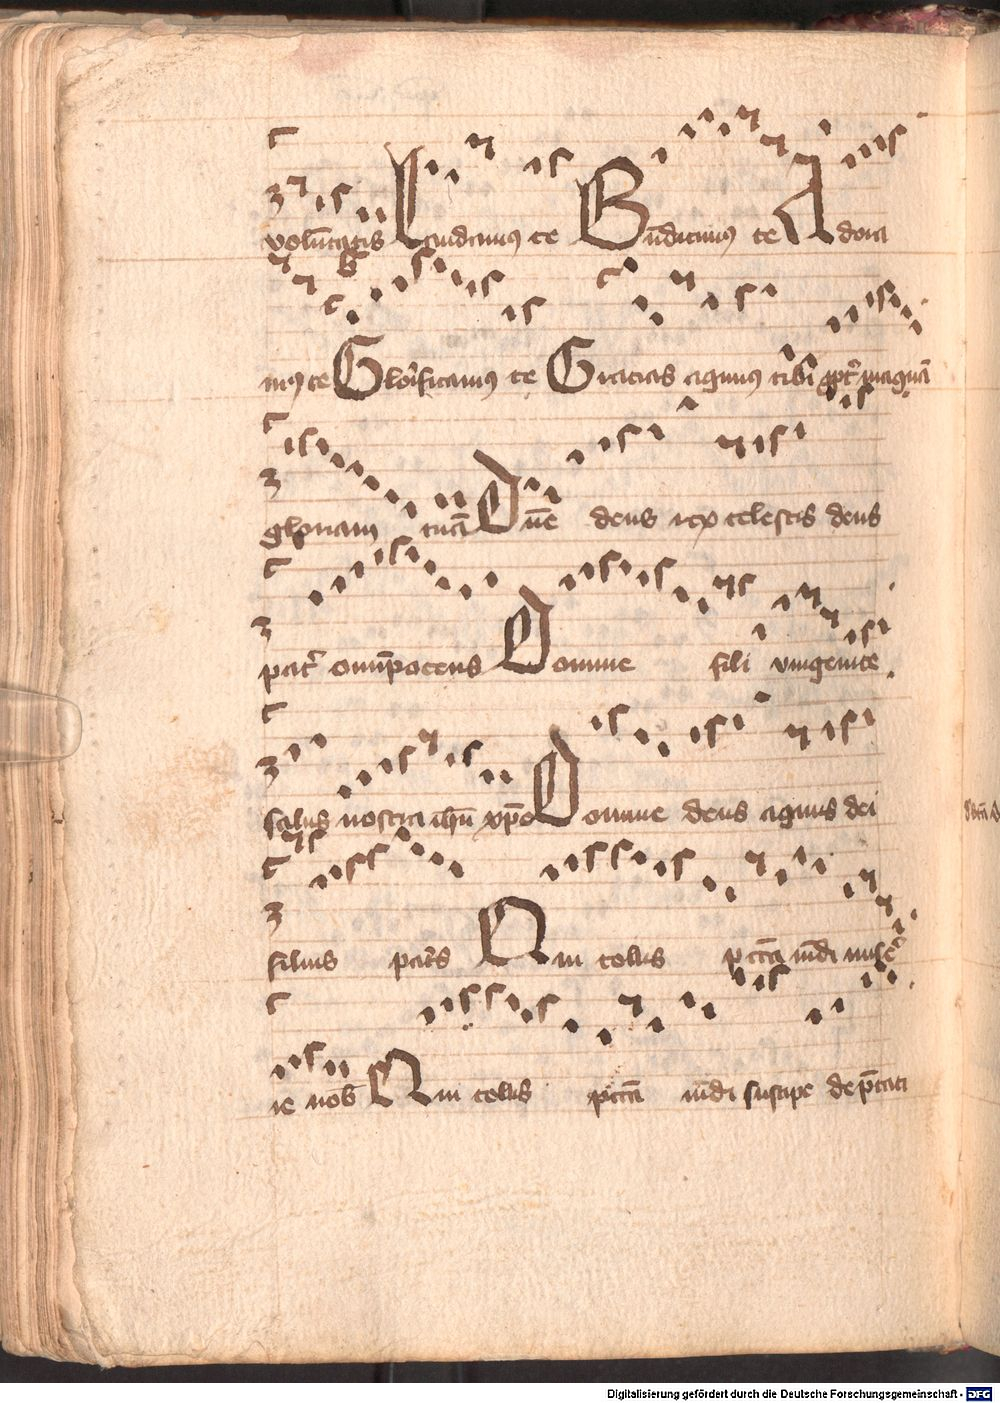 volūtatis Laudamus te Bn̄dicimus te Adora
mus te Glorificamus te Gracias agimus tibi ꝓpt̄ magnā
gloriam tuā Dn̄e deus rex celestis deus
pat̄ omīpotens Domine fili vnigenite
salus nostra ihū xp̄e Domine deus agnus dei
filius patīs Qui tollis pctā mūdi mise
re nob̄ Qui tollis pctā mūdi suscipe dep̄cati
Digitalisierung gefördert durch die Deutsche Forschungsgemeinschaft - DFG